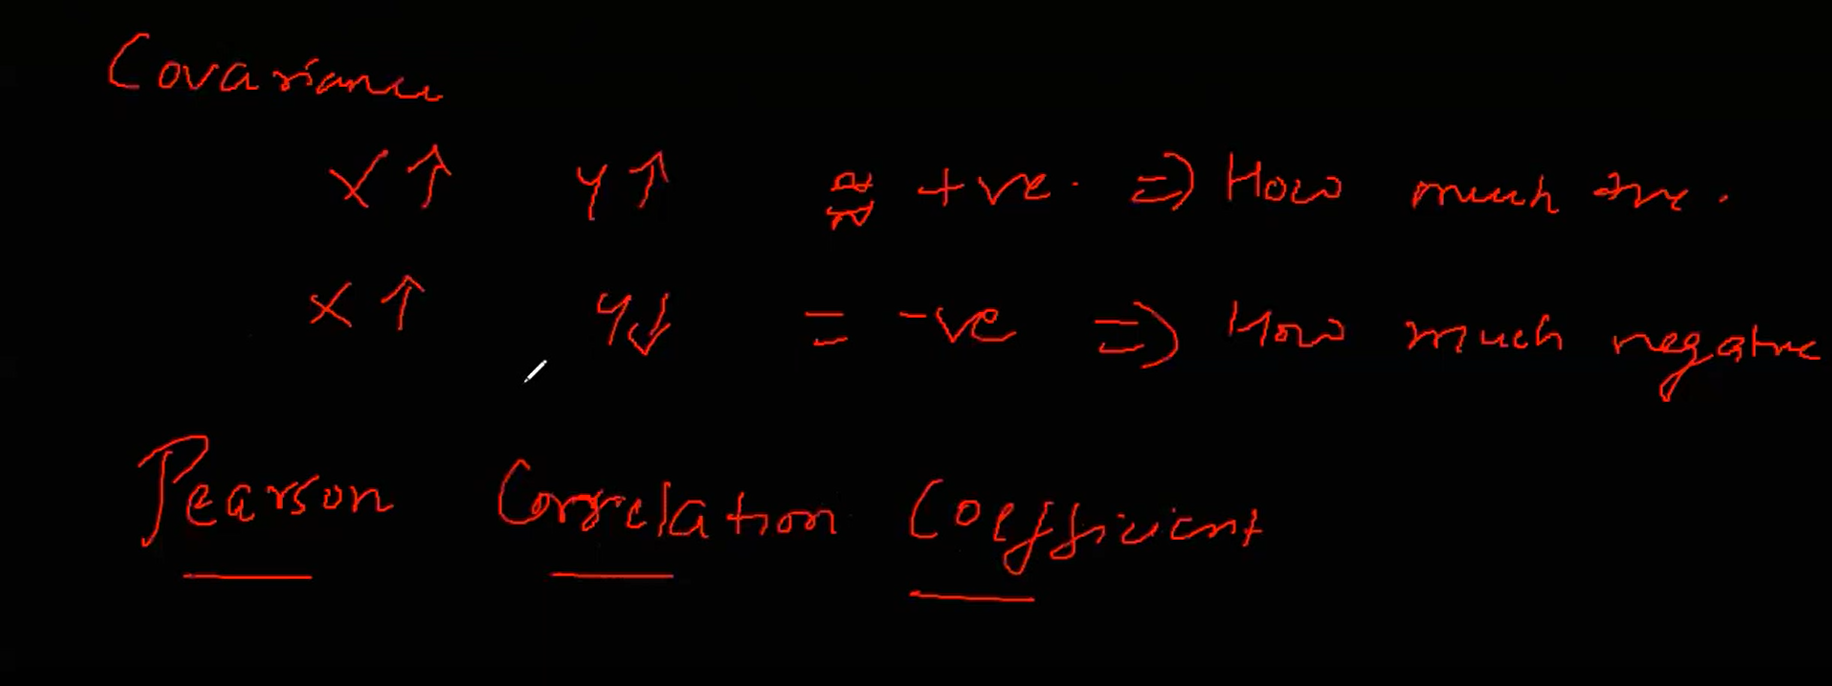 Covariance
X ↑ Y ↑ +ve. => How much +ve.
X ↑ Y ↓ = -ve => How much negative
Pearson Correlation Coefficient